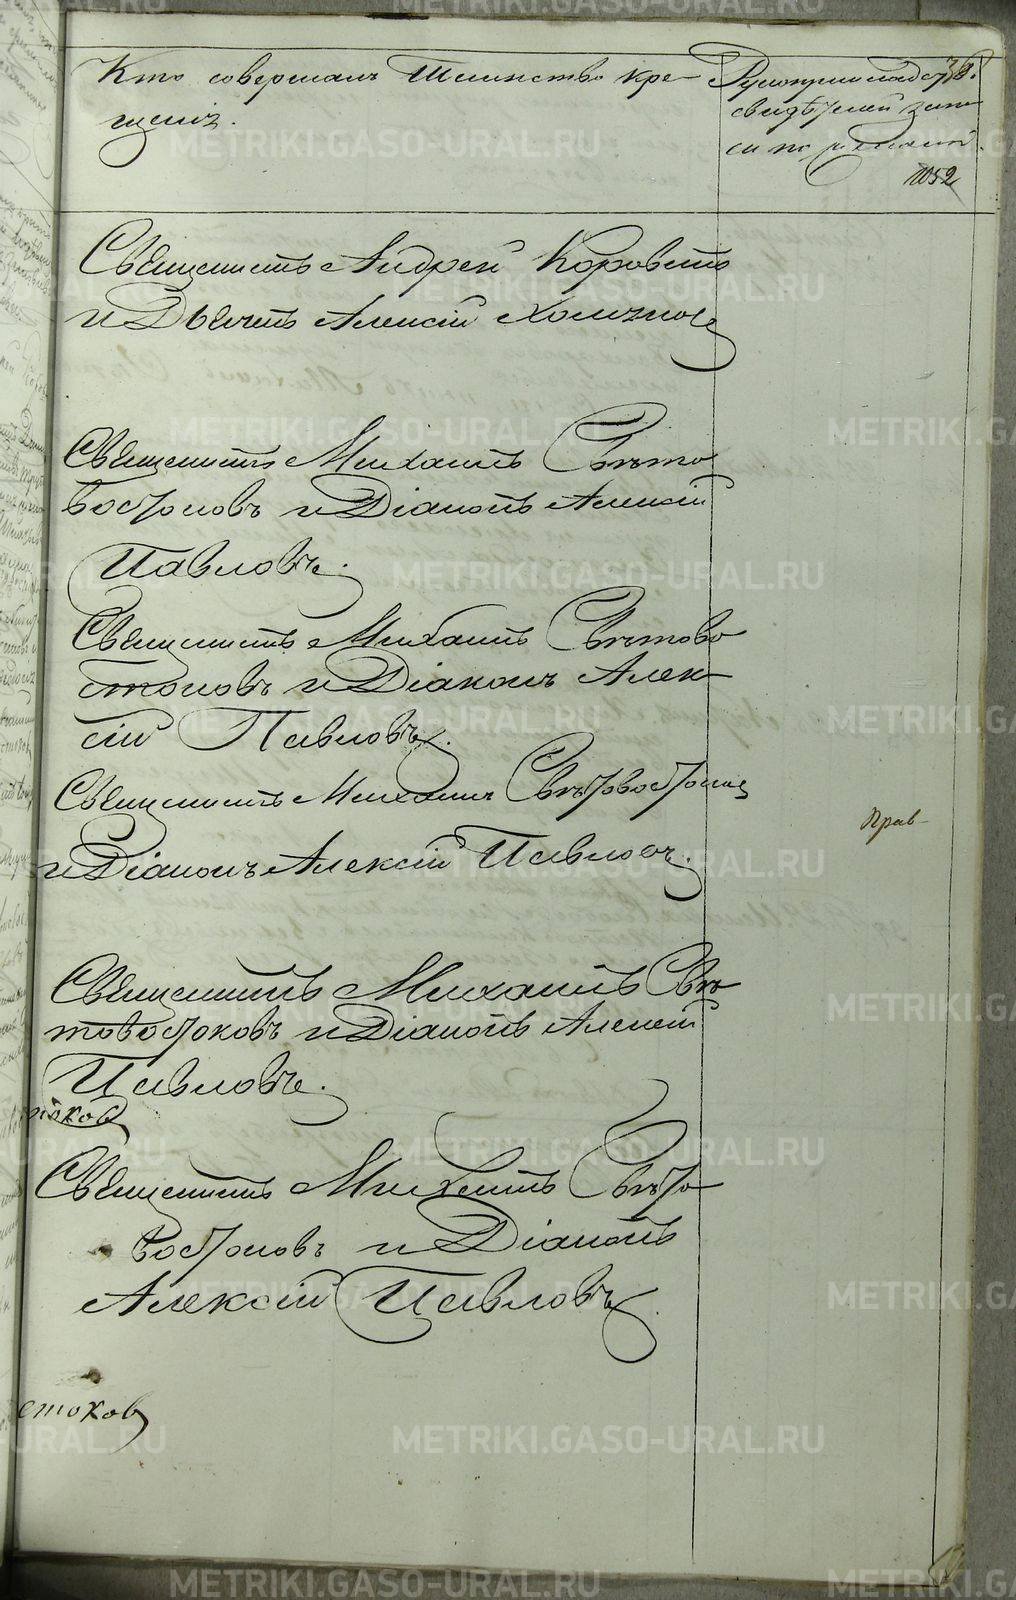 Кто совершалъ Таинство кре-
щенія.
Рукоприкладство
свидѣтелей запи-
си по желанію.
1052
Священникъ Андрей Коровинъ
и Дьячекъ Алексій
Священникъ Михаилъ Свѣто
востоковъ и Діаконъ Алексій
Павловъ.
Священникъ Михаилъ Свѣтово
стоковъ и Діаконъ Алек-
сій Павловъ.
Священникъ Михаилъ Свѣтовостоковъ
и Діаконъ Алексій Павловъ.
Прав-
Священникъ Михаилъ Свѣ-
товостоковъ и Діаконъ Алексій
Павловъ.
токов
Священникъ Михаилъ Свѣто-
востоковъ и Діаконъ
Алексій Павловъ.
стоков
METRIKI.GASO-URAL.RU